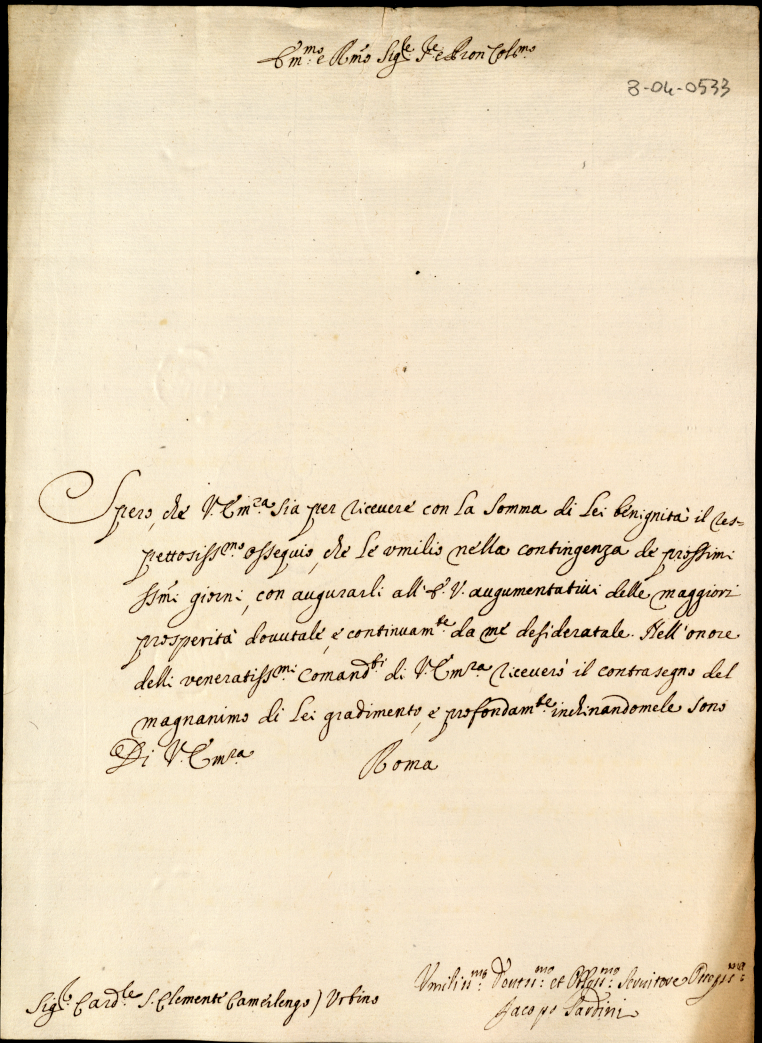 Em.mo e Rmo Sig.re P.re e Pron Col.mo
8-04-0533
Spero, che V. Em.za sia per ricevere con la somma di Lei benignità il res=
pettosiss.mo ossequio, che Le umilio nella contingenza de prossimi
ssmi giorni, con augurarli all' E. V. augumentativi delle maggiori
prosperità dovutale, e continuam.te da me desideratale. Nell' onore
delli veneratiss.mi Comand.ti di V. Em.za riceverò il contrasegno del
magnanimo di Lei gradimento, e profondam.te inchinandomele sono
Di V. Em.za Roma
Umiliss.mo Devotis.mo et Obl.mo Servitore
Jacopo Sardini
Sig.r Card.le S. Clemente Camerlengo) Urbino